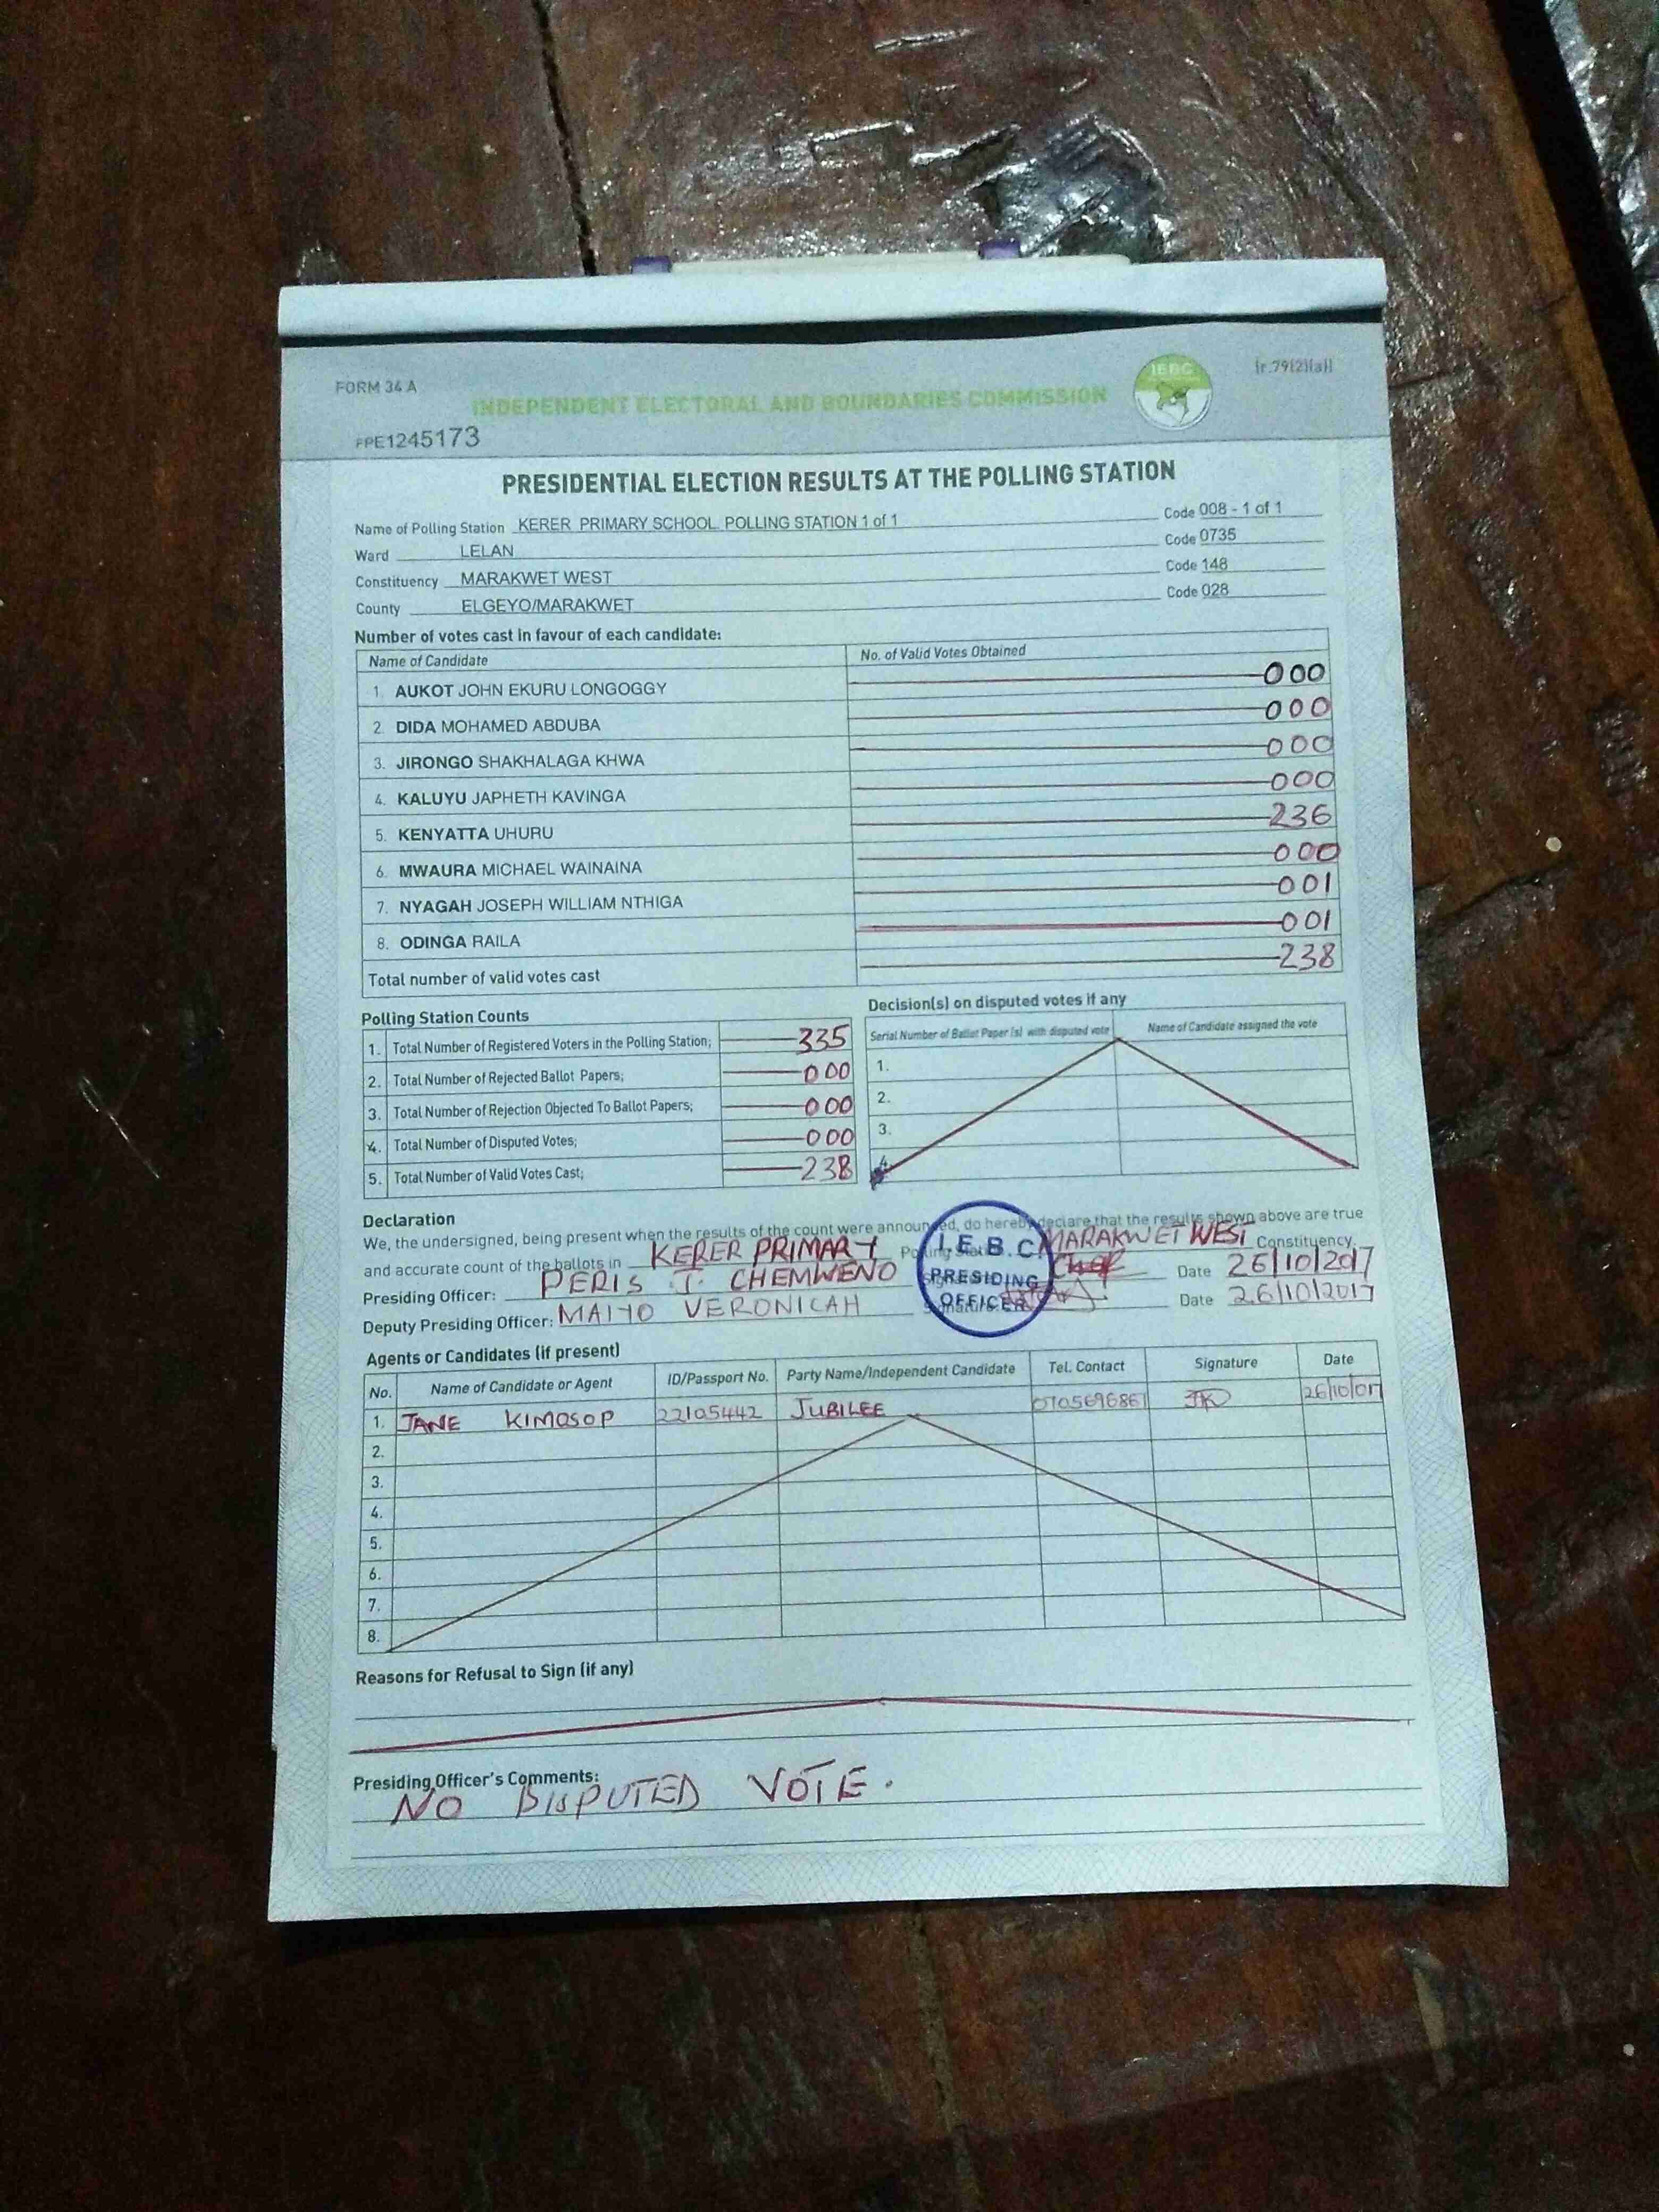 FORM 34 A
(r.79(2)(a))
INDEPENDENT ELECTORAL AND BOUNDARIES COMMISSION
IEBC
PPE1245173
PRESIDENTIAL ELECTION RESULTS AT THE POLLING STATION
Name of Polling Station KERER PRIMARY SCHOOL POLLING STATION 1 of 1 Code 008 - 1 of 1
Ward LELAN Code 0735
Constituency MARAKWET WEST Code 148
County ELGEYO/MARAKWET Code 028
Number of votes cast in favour of each candidate:
Name of Candidate No. of Valid Votes Obtained
1. AUKOT JOHN EKURU LONGOGGY 000
2. DIDA MOHAMED ABDUBA 000
3. JIRONGO SHAKHALAGA KHWA 000
4. KALUYU JAPHETH KAVINGA 000
5. KENYATTA UHURU 236
6. MWAURA MICHAEL WAINAINA 000
7. NYAGAH JOSEPH WILLIAM NTHIGA 001
8. ODINGA RAILA 001
Total number of valid votes cast 238
Polling Station Counts
1. Total Number of Registered Voters in the Polling Station; 335
2. Total Number of Rejected Ballot Papers; 000
3. Total Number of Rejection Objected To Ballot Papers; 000
4. Total Number of Disputed Votes; 000
5. Total Number of Valid Votes Cast; 238
Decision(s) on disputed votes if any
Serial Number of Ballot Paper (s) with disputed vote Name of Candidate assigned the vote
1.
2.
3.
4.
Declaration
We, the undersigned, being present when the results of the count were announced, do hereby declare that the results shown above are true
and accurate count of the ballots in KERER PRIMARY Polling Station MARAKWET WEST Constituency.
Presiding Officer: PERIS J. CHEMWENO Signature Date 26/10/2017
Deputy Presiding Officer: MAIYO VERONICAH Signature Date 26/10/2017
I.E.B.C
PRESIDING
OFFICER
Agents or Candidates (if present)
No. Name of Candidate or Agent ID/Passport No. Party Name/Independent Candidate Tel. Contact Signature Date
1. JANE KIMOSOP 22105442 JUBILEE 0705696861 26/10/017
2.
3.
4.
5.
6.
7.
8.
Reasons for Refusal to Sign (if any)
Presiding Officer's Comments:
NO DISPUTED VOTE.